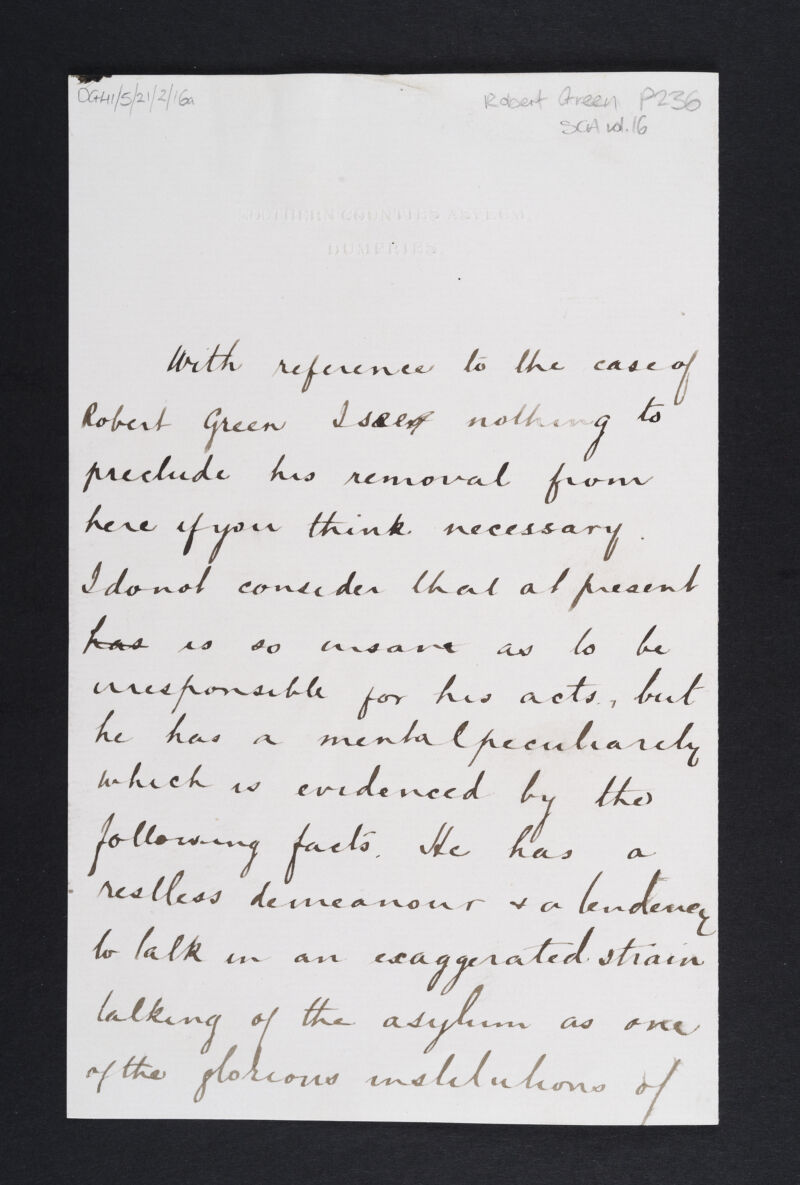 DGH1/5/21/2/16a
Robert Green P236
SCA vol.16
SOUTHERN COUNTIES ASYLUM,
DUMFRIES.
With reference to the case of
Robert Green I see nothing to
preclude his removal from
here if you think necessary.
I do not consider that at present
has is so insane as to be
irresponsible for his acts, but
he has a mental peculiarity
which is evidenced by the
following facts. He has a
restless demeanour & a tendency
to talk in an exaggerated strain
talking of the asylum as one
of the glorious institutions of